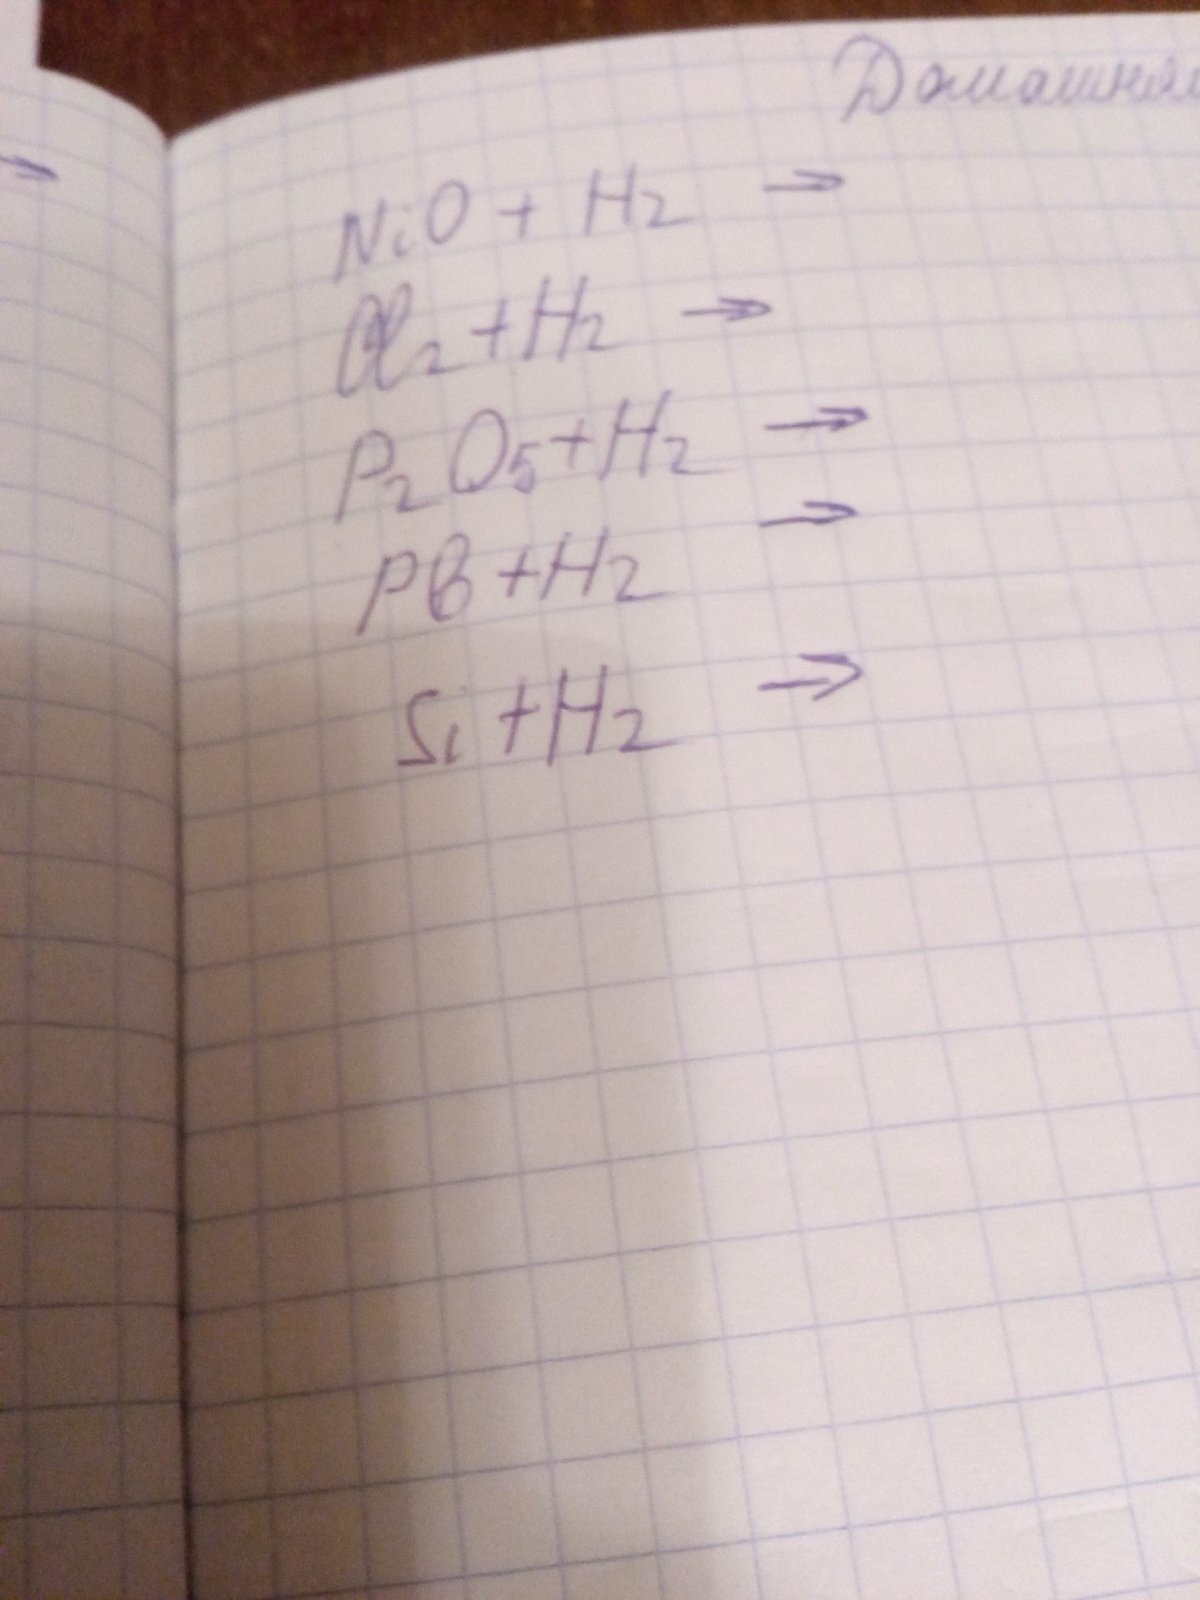 Домашняя
NiO + H2 →
Cl2 + H2 →
P2O5 + H2 →
PB + H2 →
Si + H2 →